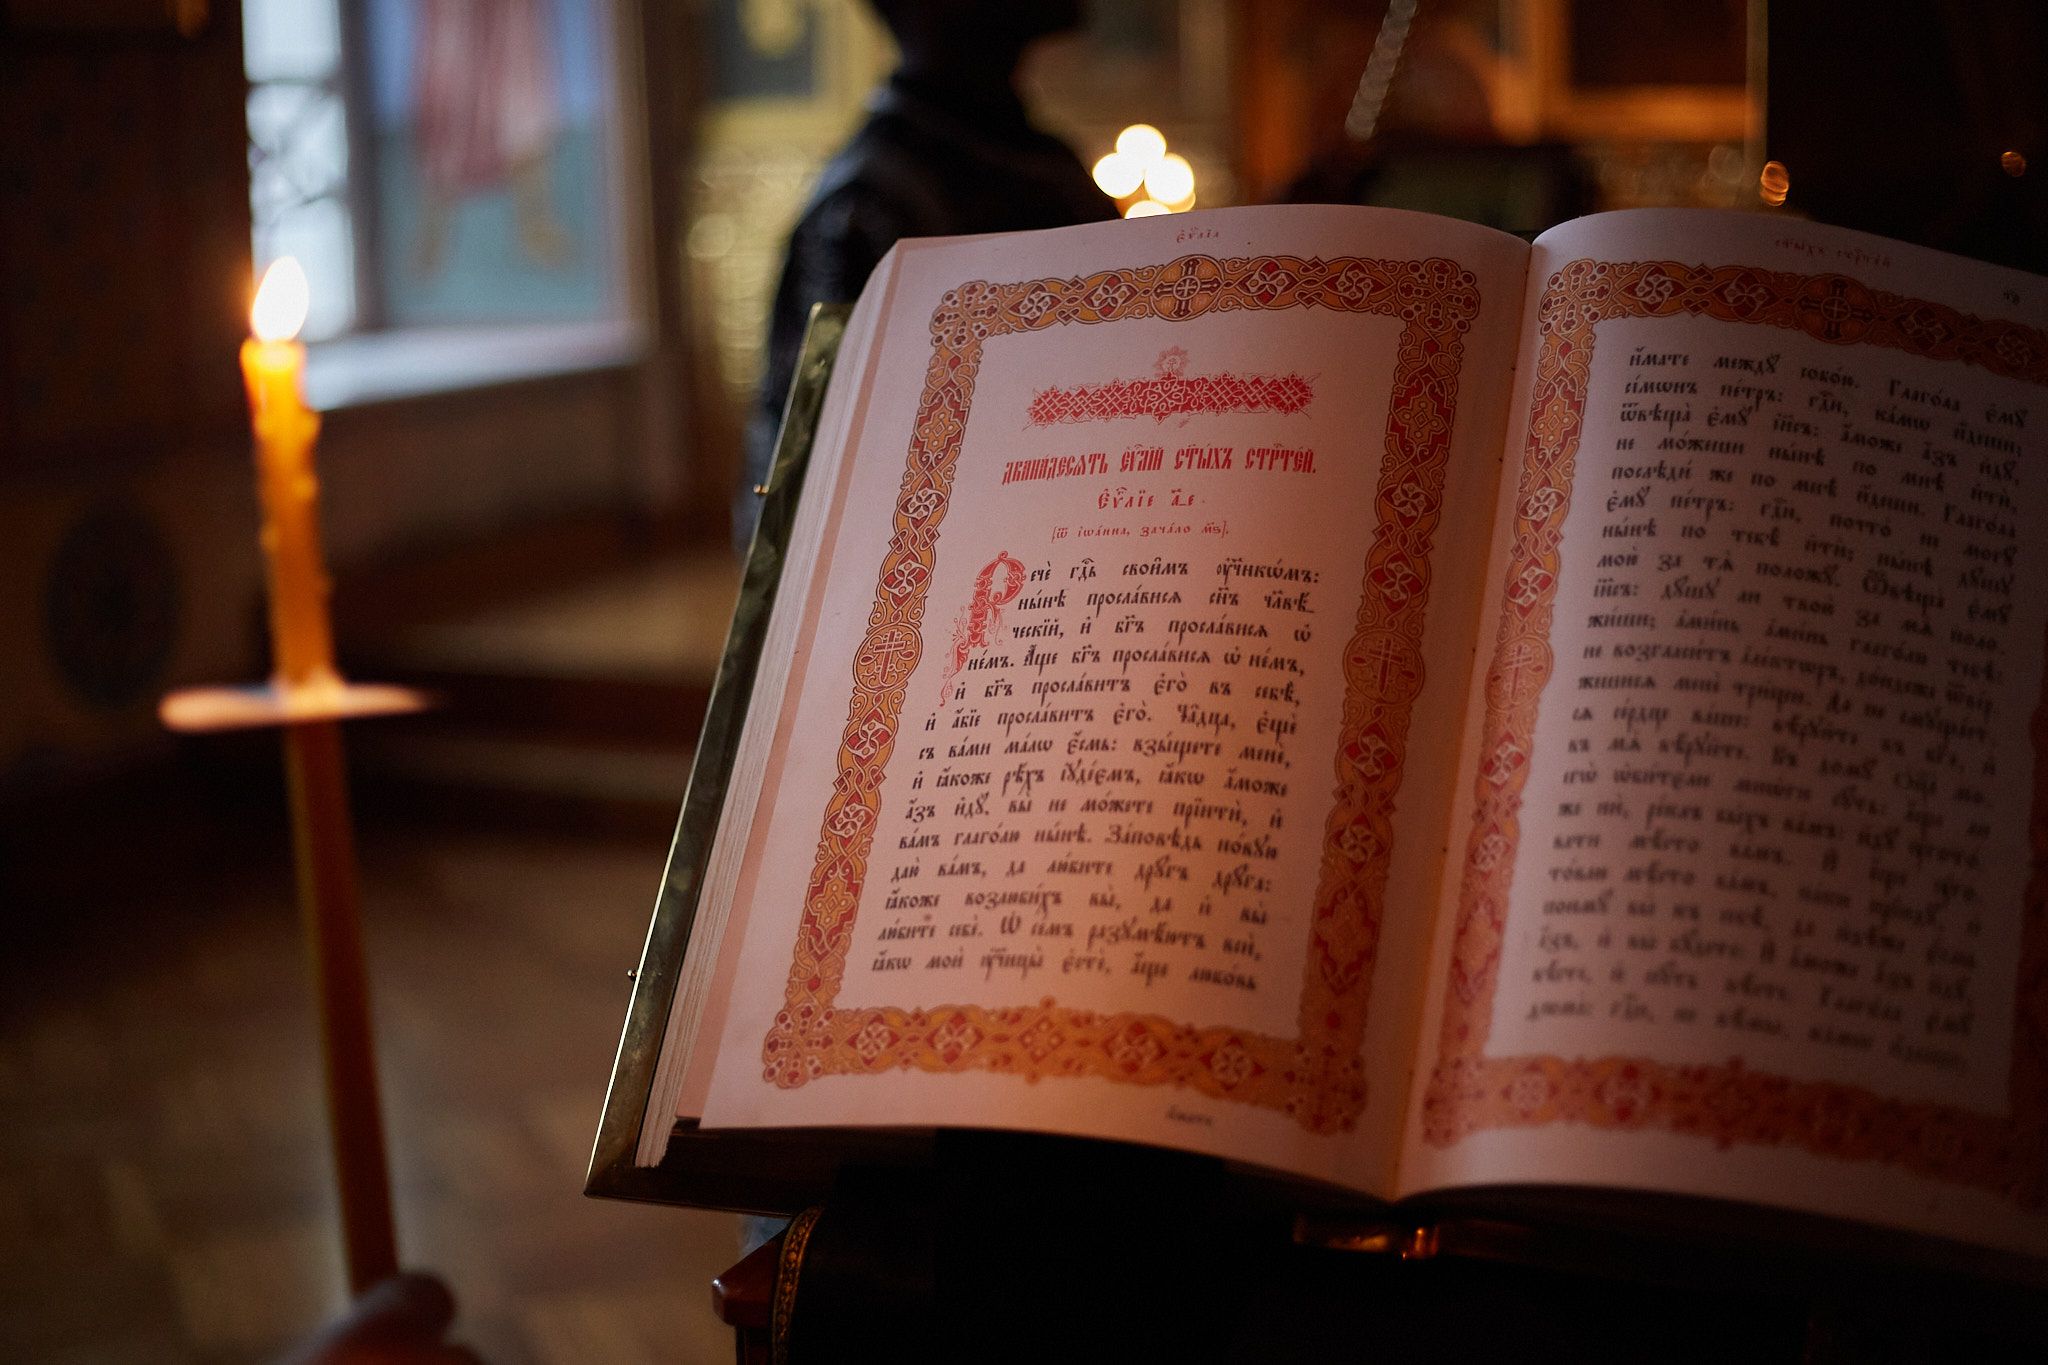 Еѵⷢ҇лїа
двана́десѧть є҆ѵⷢ҇лїй ст҃ы́хъ стрⷭ҇те́й.
Є҆ѵⷢ҇лїе а҃_е.
[Ѿ і҆ѡа́нна, зача́ло м҃ѕ].
Речѐ гдⷭ҇ь свои̑мъ ᲂу҆чн҃кѡ́мъ:
ны́нѣ просла́висѧ сн҃ъ чл҃вѣ́-
ческїй, и҆ бг҃ъ просла́висѧ ѡ҆
не́мъ. А҆́ще бг҃ъ просла́висѧ ѡ҆ не́мъ,
и҆ бг҃ъ просла́витъ є҆го̀ въ себѣ̀,
и҆ а҆́бїе просла́витъ є҆го̀. Ча̑дца, є҆щѐ
съ ва́ми ма́лѡ є҆́смь: взы́щете менѐ,
и҆ ꙗ҆́коже рѣ́хъ і҆ꙋде́ємъ, ꙗ҆́кѡ а҆́може
а҆́зъ и҆дꙋ̀, вы̀ не мо́жете прїитѝ, и҆
ва́мъ глаго́лю ны́нѣ. За́повѣдь но́вꙋю
даю̀ ва́мъ, да лю́бите дрꙋ́гъ дрꙋ́га:
ꙗ҆́коже возлюби́хъ вы̀, да и҆ вы̀
лю́бите себѐ. Ѡ҆ се́мъ разꙋмѣ́ютъ всѝ,
ꙗ҆́кѡ моѝ ᲂу҆чн҃цы̀ є҆стѐ, а҆́ще любо́вь
и҆́мате междꙋ̀ собо́ю. Глаго́ла є҆мꙋ̀
сі́мѡнъ пе́тръ: гдⷭ҇и, ка́мѡ и҆́деши;
ѿвѣща̀ є҆мꙋ̀ і҆и҃съ: а҆́може а҆́зъ и҆дꙋ̀,
не мо́жеши ны́нѣ по мнѣ̀ и҆тѝ,
послѣди́ же по мнѣ̀ и҆́деши. Глаго́ла
є҆мꙋ̀ пе́тръ: гдⷭ҇и, почто̀ не могꙋ̀
ны́нѣ по тебѣ̀ и҆тѝ; ны́нѣ дꙋ́шꙋ
мою̀ за тѧ̀ положꙋ̀. Ѿвѣща̀ є҆мꙋ̀
і҆и҃съ: дꙋ́шꙋ ли твою̀ за мѧ̀ поло-
жи́ши; а҆ми́нь а҆ми́нь глаго́лю тебѣ̀:
не возгласи́тъ а҆ле́ктѡръ, до́ндеже ѿве́р-
жешисѧ менє̀ три́щи. Да не смꙋща́етсѧ
се́рдце ва́ше: вѣ́рꙋйте въ бг҃а, и҆
въ мѧ̀ вѣ́рꙋйте. Въ домꙋ̀ ѻ҆ц҃а̀ мо-
егѡ̀ ѡ҆би́тєли мнѡ́ги сꙋ́ть: а҆́ще ли
же нѝ, ре́клъ бы́хъ ва́мъ: и҆дꙋ̀ ᲂу҆гото́-